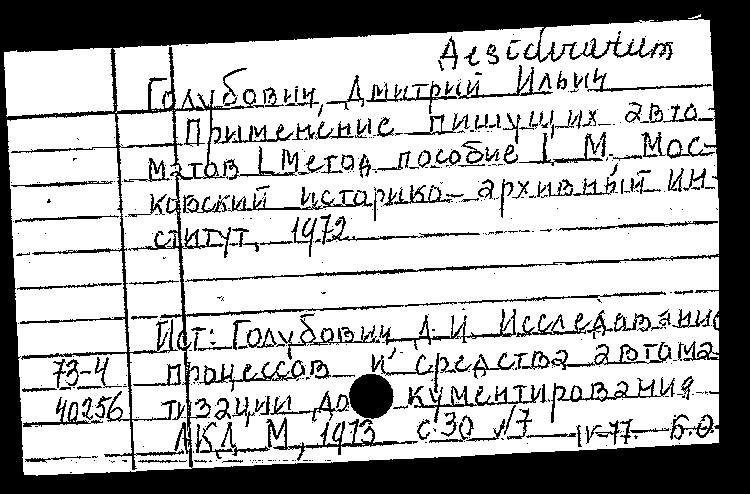 Дезiдerатит
Голубович, Дмитрий Ильич
Применение пишущих авто-
матов [Метод пособие]. М, Мос-
ковский историко-архивный ин-
ститут, 1972.
Ист: Голубович Д. И. Исследование
73-4 процессов и средства автома-
40256 тизации документирования
АКД М, 1973 с 30 №7 IV-77. Б.О.